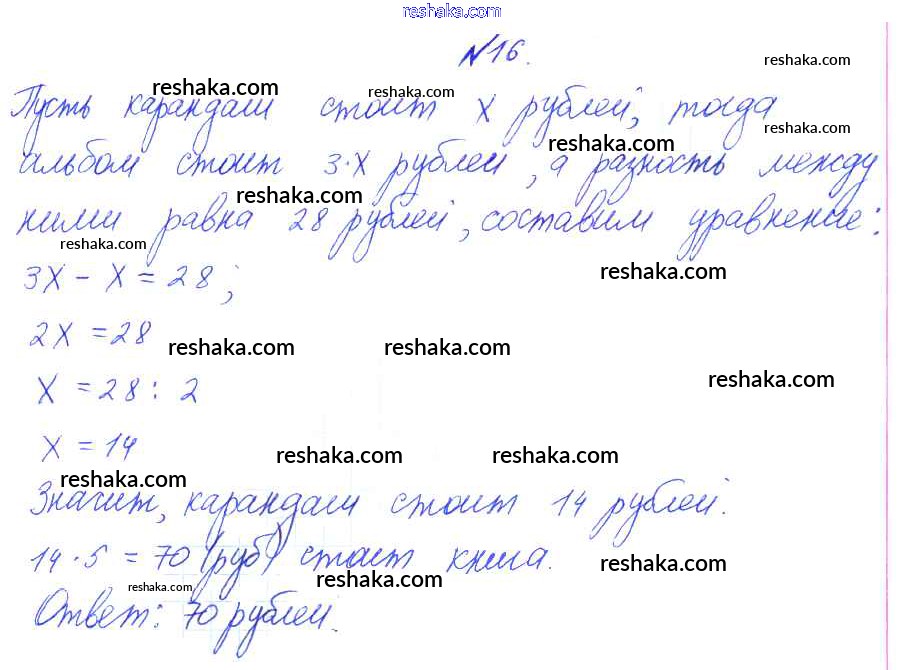 reshaka.com
№16.
reshaka.com
reshaka.com
reshaka.com
Пусть карандаш стоит х рублей, тогда
reshaka.com
reshaka.com
альбом стоит 3·х рублей, а разность между
reshaka.com
ними равна 28 рублей, составим уравнение:
reshaka.com
reshaka.com
3х - х = 28;
2х = 28
reshaka.com reshaka.com
reshaka.com
х = 28 : 2
х = 14
reshaka.com reshaka.com
reshaka.com
Значит, карандаш стоит 14 рублей.
14 · 5 = 70 (руб) стоит книга.
reshaka.com
reshaka.com
reshaka.com
Ответ: 70 рублей.